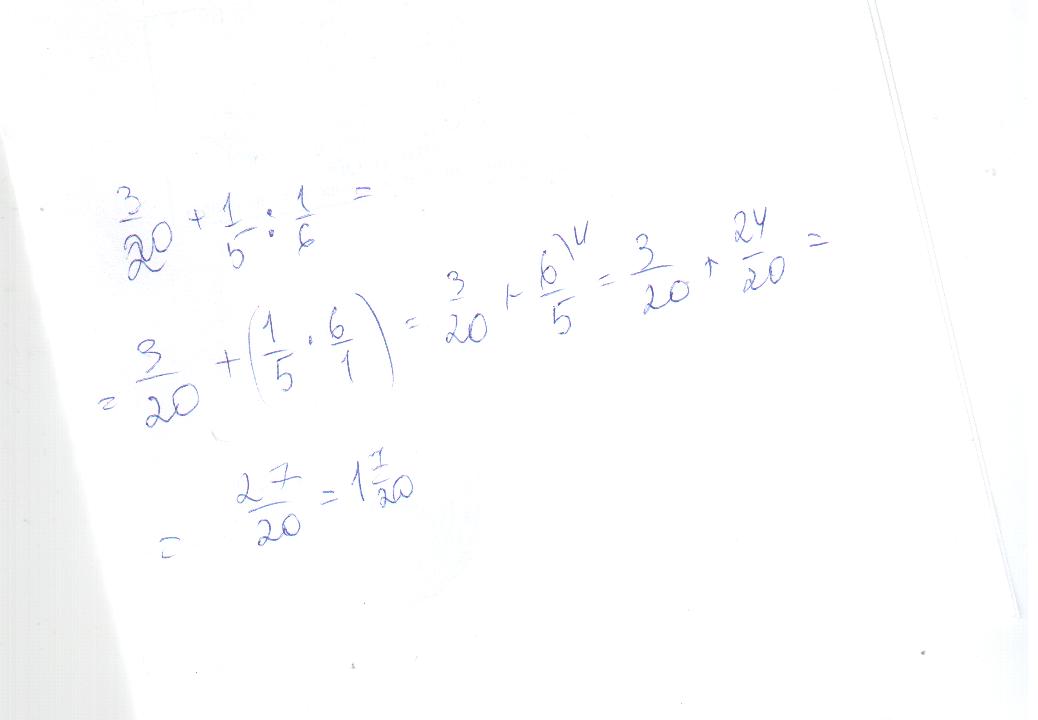 3/20 + 1/5 : 1/6 =
= 3/20 + (1/5 · 6/1) = 3/20 + 6/5 \4 = 3/20 + 24/20 =
= 27/20 = 1 7/20